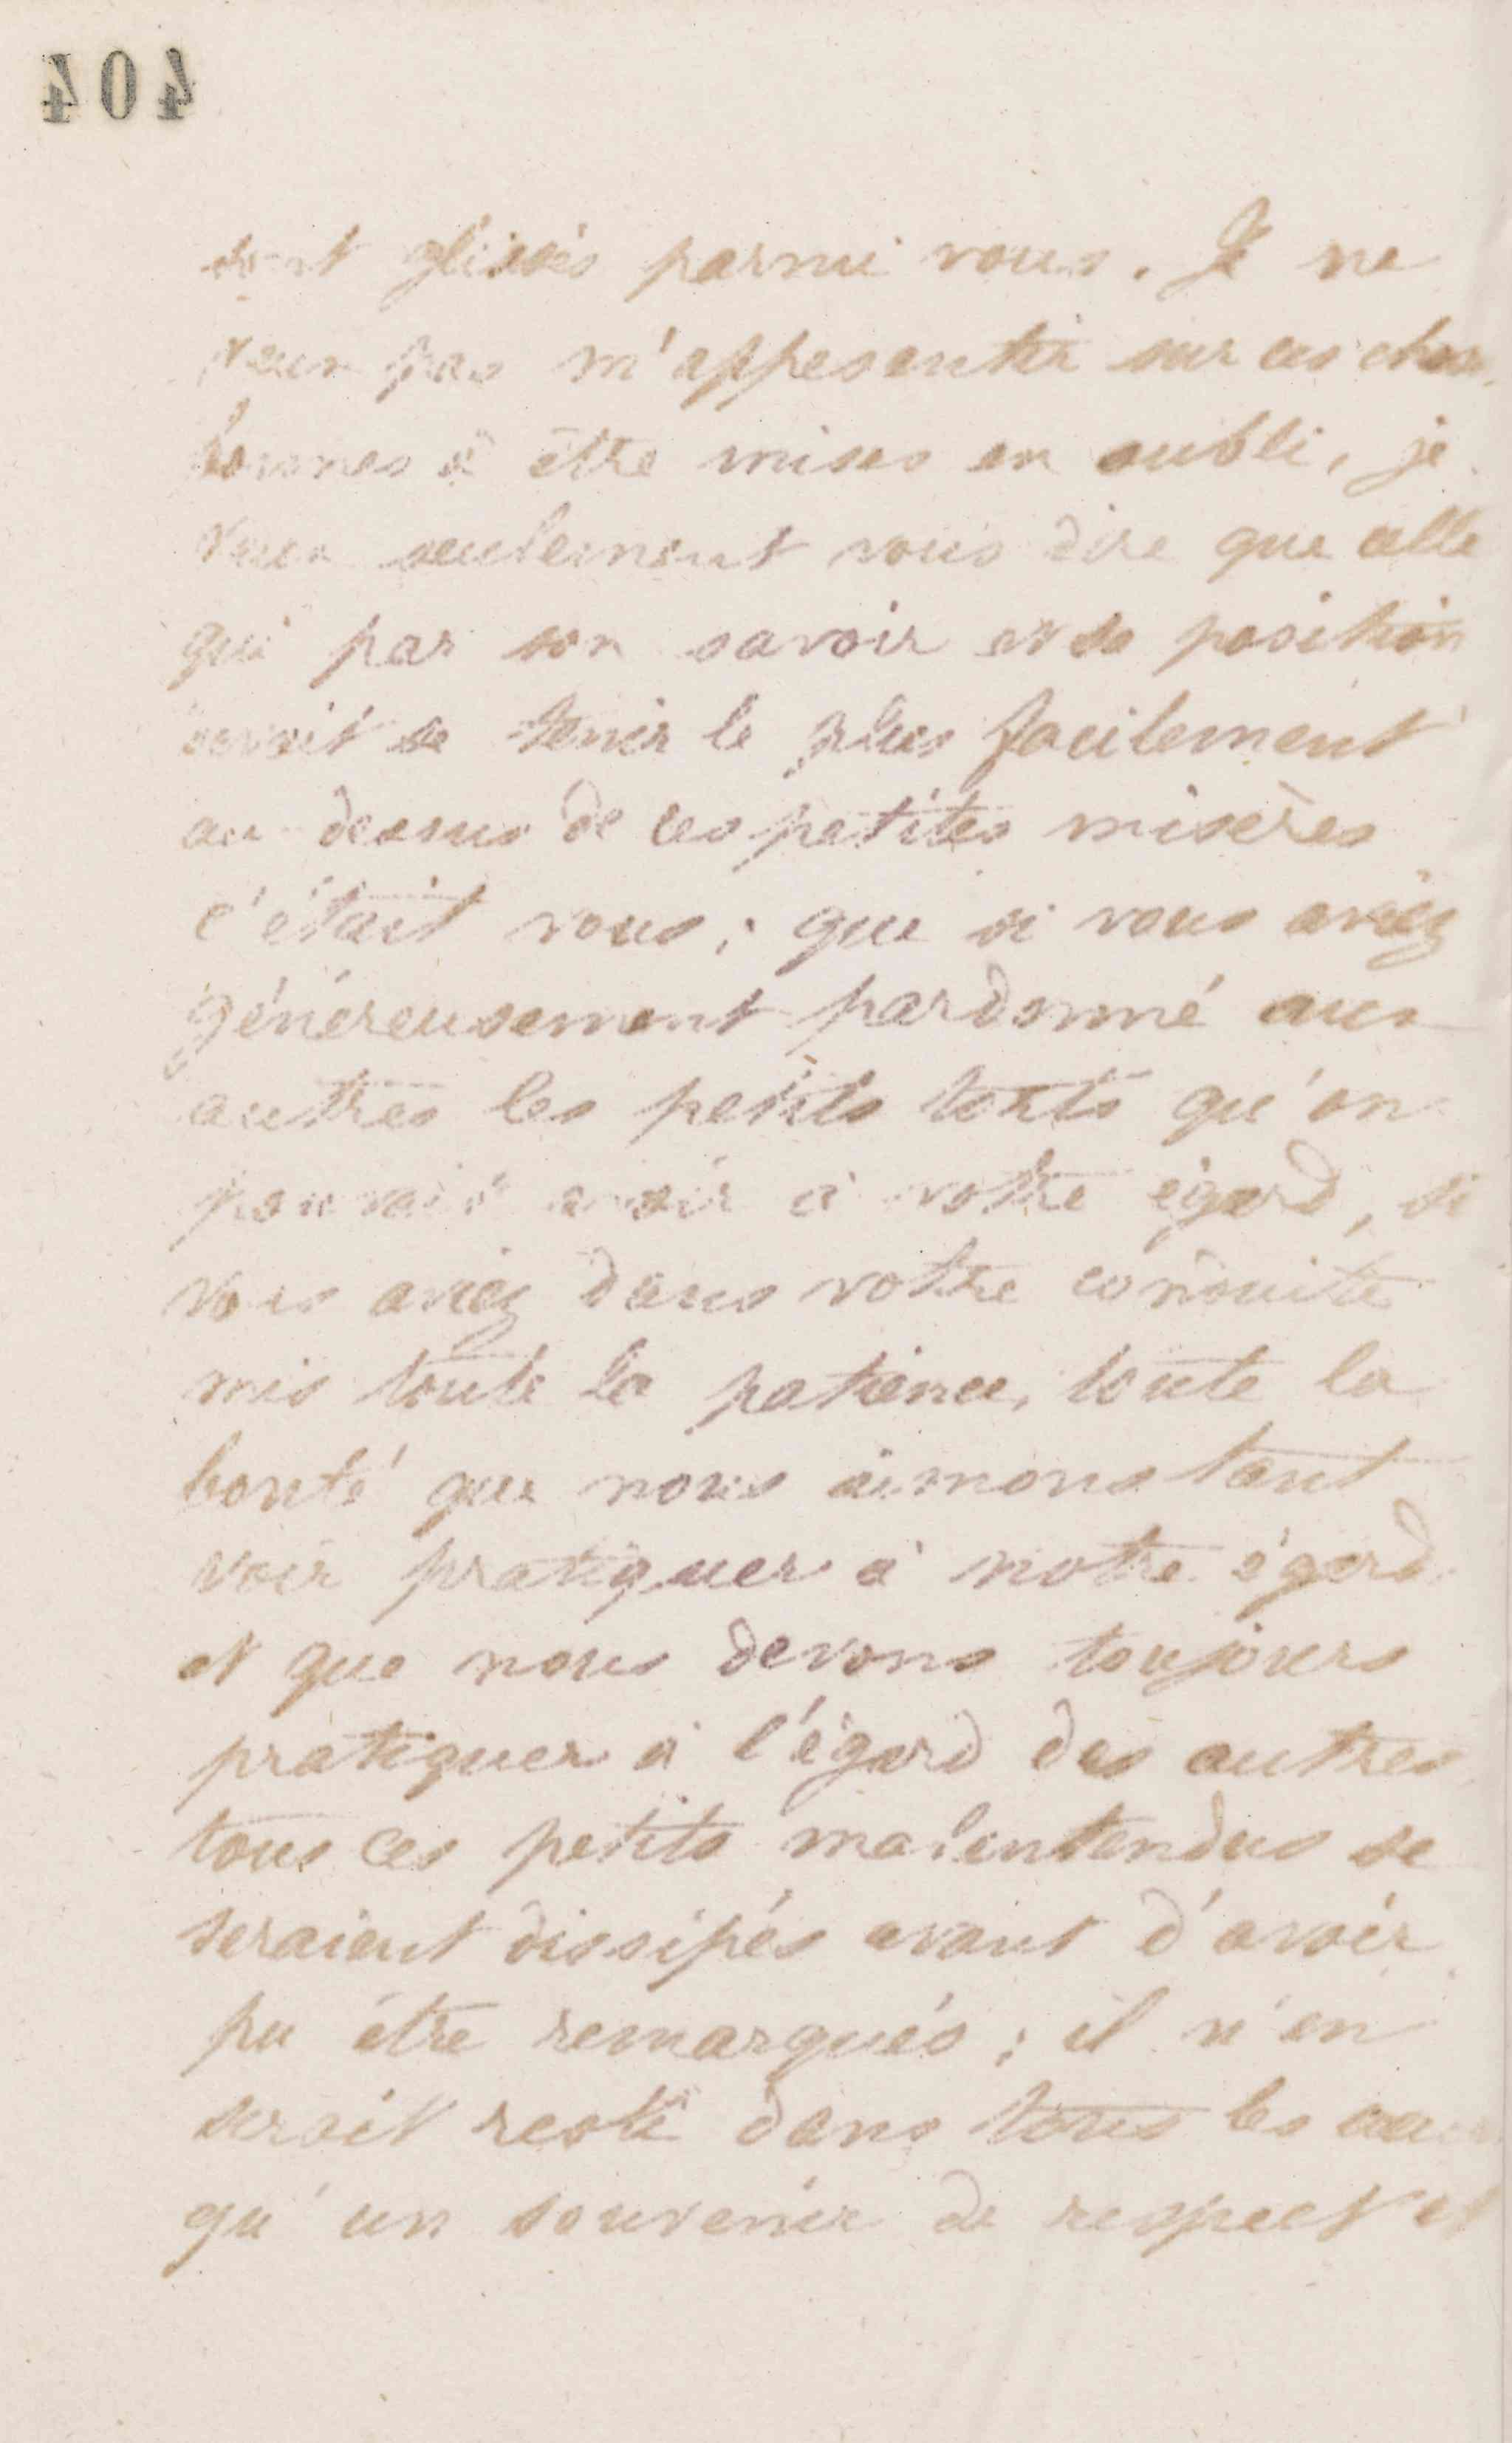 404
sont glissés parmi vous. Je ne
veux pas m'appesentir sur ces choses
bonnes à être mises en oubli, je
veux seulement vous dire que celle
qui par son savoir et sa position
devait se tenir le plus facilement
au dessus de ces petites misères
c'était vous; que si vous aviez
généreusement pardonné aux
autres les petits torts qu'on
pouvait avoir à votre égard, si
vous aviez dans votre conduite
mis toute la patience, toute la
bonté que nous aimons tant
voir pratiquer à notre égard
et que nous devons toujours
pratiquer à l'égard des autres
tous ces petits malentendus se
seraient dissipés avant d'avoir
pu être remarqués; il n'en
serait resté dans tous les
qu'un souvenir de respect et